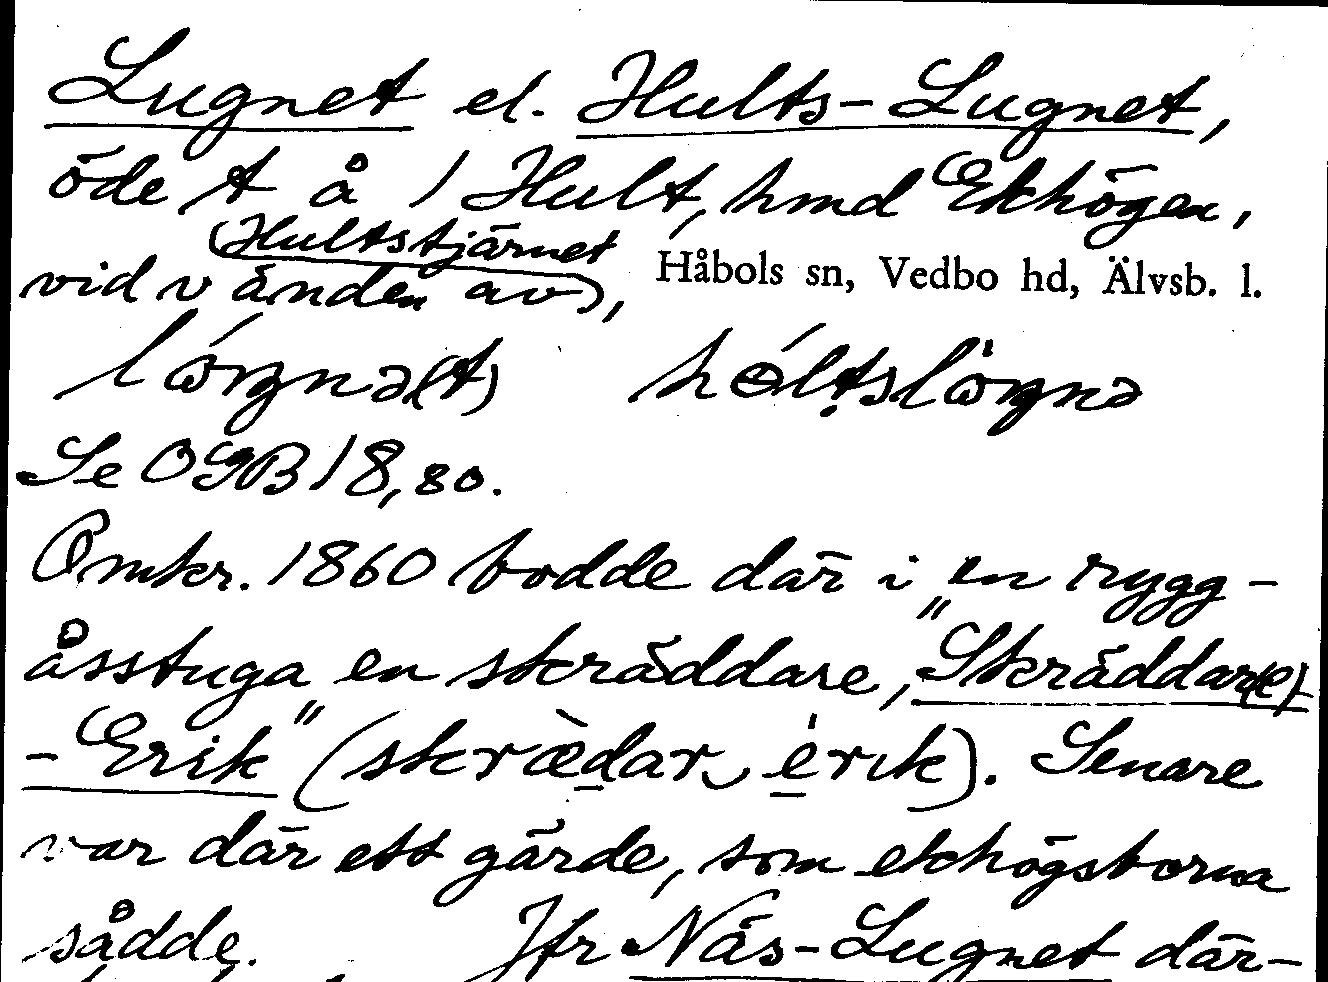 Lugnet el. Hults-Lugnet,
öde t å 1 Hult, hmd Ekhögen,
vid v änden av (Hultstjärnet),
Håbols sn, Vedbo hd, Älvsb. l.
Se OGB 18, 80.
Omkr. 1860 bodde där i en rygg-
åsstuga en skräddare, "Skräddar(e)
-Erik" (skrædar érik). Senare
var där ett gärde, som ekhögsborna
sådde. Jfr Näs-Lugnet där-